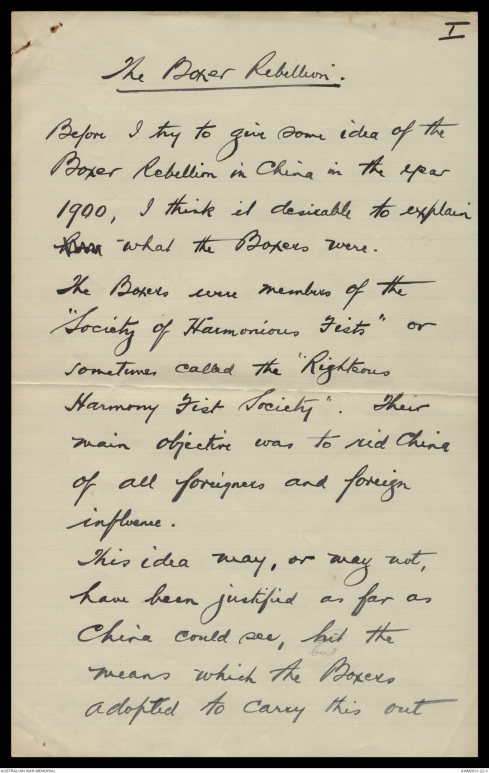 I
The Boxer Rebellion.
Before I try to give some idea of the
Boxer Rebellion in China in the year
1900, I think it desirable to explain
what the Boxers were.
The Boxers were members of the
"Society of Harmonious Fists" or
sometimes called the "Righteous
Harmony Fist Society". Their
main objective was to rid China
of all foreigners and foreign
influence.
This idea may, or may not,
have been justified as far as
China could see, but the
but
means which the Boxers
adopted to carry this out
AUSTRALIAN WAR MEMORIAL